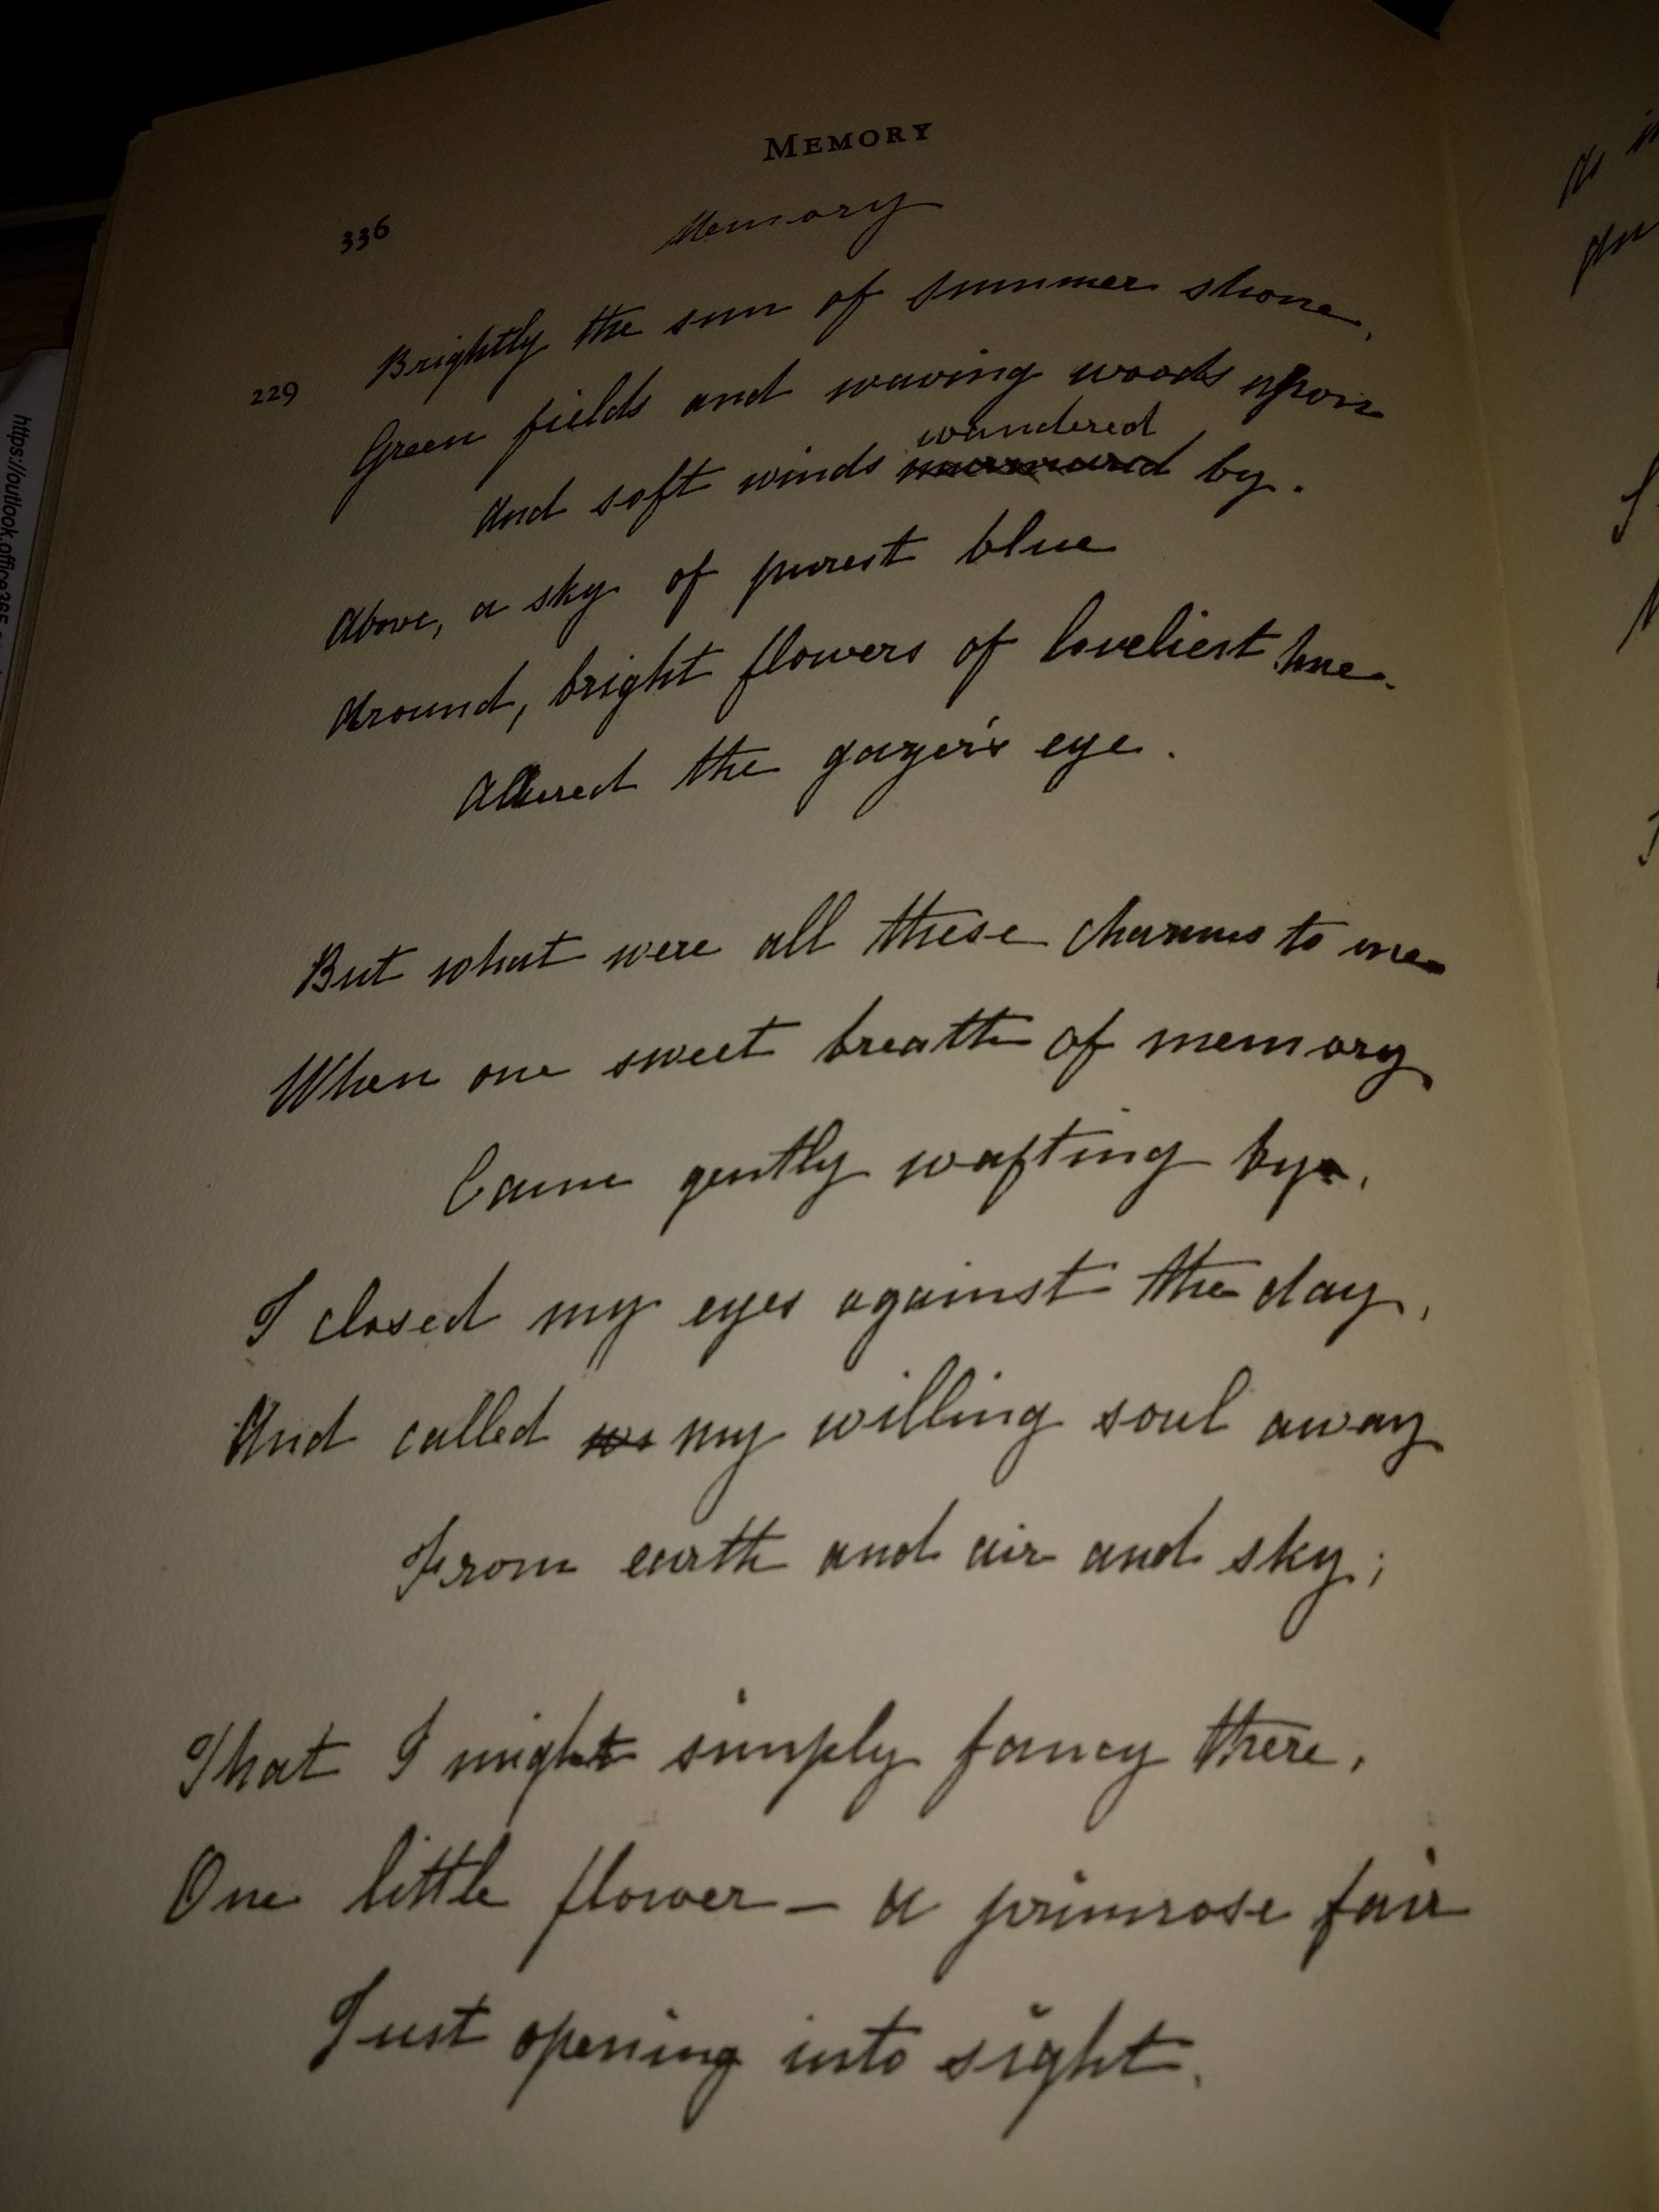 MEMORY
336
Memory
Brightly the sun of summer shone,
229
Green fields and waving woods upon
wandered
And soft winds murmured by.
Above, a sky of purest blue
Around, bright flowers of loveliest hue.
Allured the gazer's eye.
But what were all these charms to me
When one sweet breath of memory
Came gently wafting by,
I closed my eyes against the day,
And called my willing soul away
From earth and air and sky;
That I might simply fancy there,
One little flower — a primrose fair
Just opening into sight.
https://outlook.office365